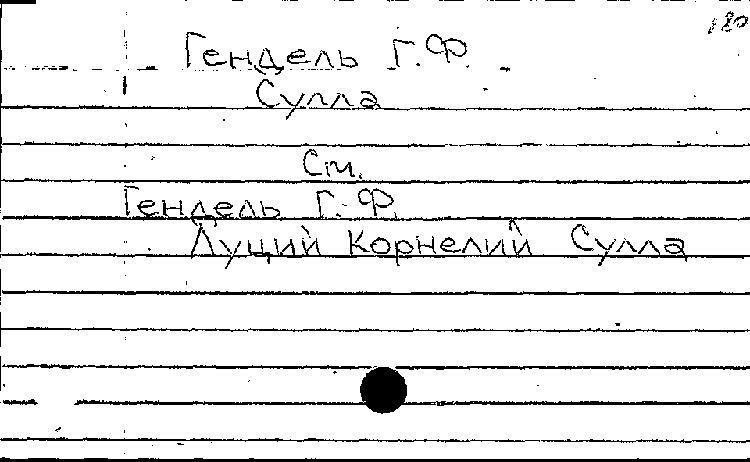 180
Гендель Г.Ф.
Сулла
См.
Гендель Г.Ф.
Луций Корнелий Сулла